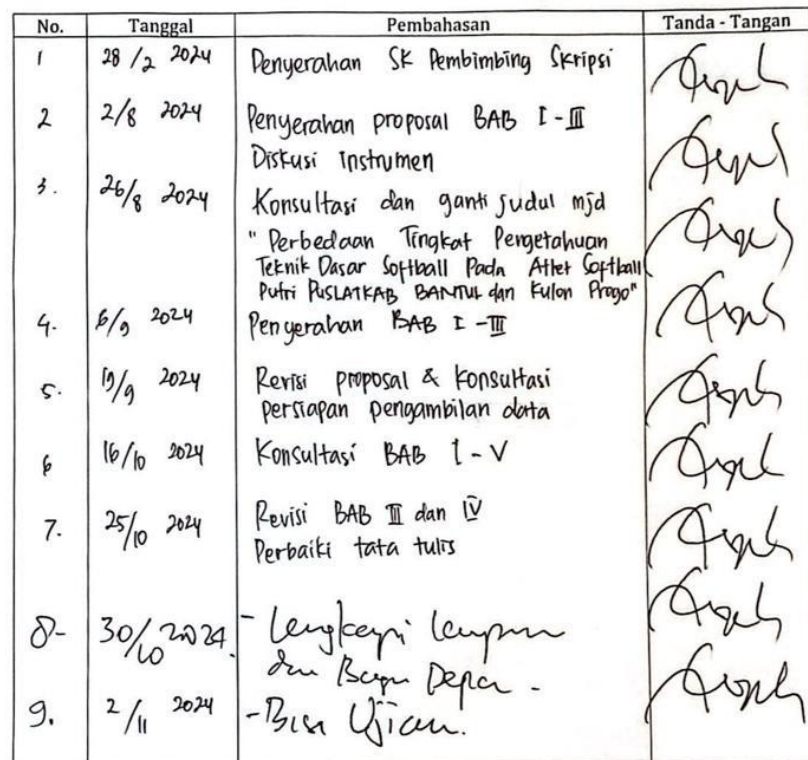 No. Tanggal Pembahasan Tanda - Tangan
1 28/2 2024 Penyerahan SK Pembimbing Skripsi
2 2/8 2024 Penyerahan proposal BAB I - III
Diskusi instrumen
3. 26/8 2024 Konsultasi dan ganti judul mjd
"Perbedaan Tingkat Pengetahuan
Teknik Dasar Softball Pada Atlet Softball
Putri PUSLATKAB BANTUL dan Kulon Progo"
4. 6/9 2024 Penyerahan BAB I - III
5. 19/9 2024 Revisi proposal & konsultasi
persiapan pengambilan data
6 16/10 2024 Konsultasi BAB I - V
7. 25/10 2024 Revisi BAB III dan IV
Perbaiki tata tulis
8- 30/10 2024. - Lengkapi lampiran
dan Bagian Depan -
9. 2/11 2024 - Bisa Ujian.